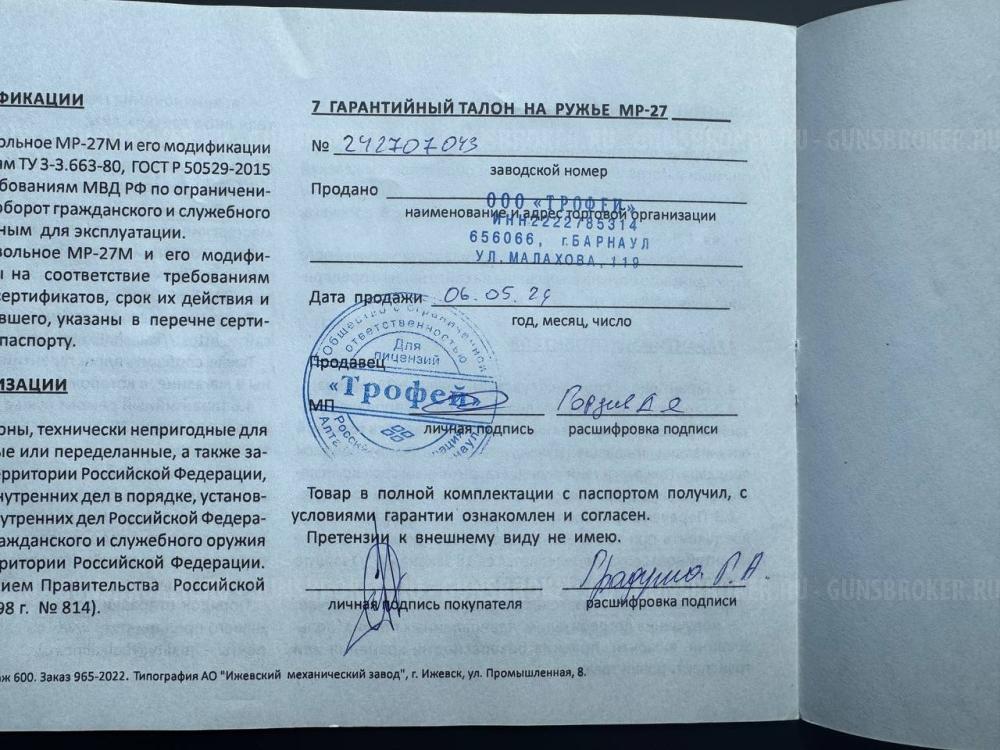 ФИКАЦИИ
ольное МР-27М и его модификации
ям ТУ 3-3.663-80, ГОСТ Р 50529-2015
бованиям МВД РФ по ограничени-
оборот гражданского и служебного
ным для эксплуатации.
вольное МР-27М и его модифи-
ы на соответствие требованиям
сертификатов, срок их действия и
вшего, указаны в перечне серти-
паспорту.
ИЗАЦИИ
оны, технически непригодные для
ые или переделанные, а также за-
ерритории Российской Федерации,
нутренних дел в порядке, установ-
утренних дел Российской Федера-
ажданского и служебного оружия
рритории Российской Федерации.
ием Правительства Российской
98 г. № 814).
7 ГАРАНТИЙНЫЙ ТАЛОН НА РУЖЬЕ МР-27
№ 242707043
заводской номер
Продано
ООО «ТРОФЕЙ»
наименование и адрес торговой организации
ИНН2222785314
656066, г.БАРНАУЛ
УЛ.МАЛАХОВА,119
Дата продажи 06.05.24
год, месяц, число
Общество с ограниченной
ответственностью
Для
лицензий
Продавец
«Трофей»
МП
личная подпись расшифровка подписи
Товар в полной комплектации с паспортом получил, с
условиями гарантии ознакомлен и согласен.
Претензий к внешнему виду не имею.
личная подпись покупателя расшифровка подписи
аж 600. Заказ 965-2022. Типография АО "Ижевский механический завод", г. Ижевск, ул. Промышленная, 8.
GUNSBROKER.RU - GUNSBROKER.RU
GUNSBROKER.RU - GUNSBROKER.RU